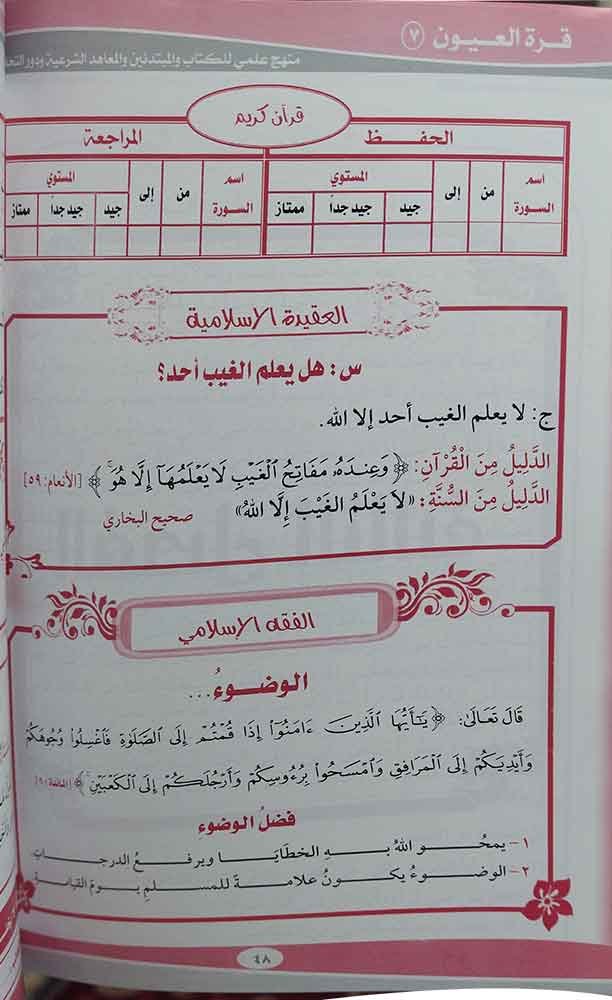 قرة العيون ٧
منهج علمي للكتاب والمبتدئين والمعاهد الشرعية ودور
قرآن كريم
الحفـــظ
المراجعة
اسم السورة
من
إلى
المستوي
جيد
جيد جداً
ممتاز
اسم السورة
من
إلى
المستوي
جيد
جيد جداً
ممتاز
العقيدة الإسلامية
س: هل يعلم الغيب أحد؟
ج: لا يعلم الغيب أحد إلا الله.
الدَّلِيلُ مِنَ الْقُرْآنِ: ﴿ وَعِندَهُۥ مَفَاتِحُ ٱلْغَيْبِ لَا يَعْلَمُهَآ إِلَّا هُوَ ۚ ﴾ [الأنعام: ٥٩]
الدَّلِيلُ مِنَ السُّنَّةِ: «لاَ يَعْلَمُ الْغَيْبَ إِلَّا اللهُ» صحيح البخاري
الفقه الإسلامي
الوضـــوءُ...
قَالَ تَعَالَى: ﴿ يَٰٓأَيُّهَا ٱلَّذِينَ ءَامَنُوٓا۟ إِذَا قُمْتُمْ إِلَى ٱلصَّلَوٰةِ فَٱغْسِلُوا۟ وُجُوهَكُمْ
وَأَيْدِيَكُمْ إِلَى ٱلْمَرَافِقِ وَٱمْسَحُوا۟ بِرُءُوسِكُمْ وَأَرْجُلَكُمْ إِلَى ٱلْكَعْبَيْنِ ۚ ﴾ [المائدة: ٦]
فضلُ الوضوءِ
١- يمحُـــو اللهُ بـــهِ الخطايَـــا ويرفـــعُ الدرجـــاتِ
٢- الوضـــوءُ يكـــونُ علامـــةً للمســـلمِ يـــومَ القيامـــةِ
٤٨